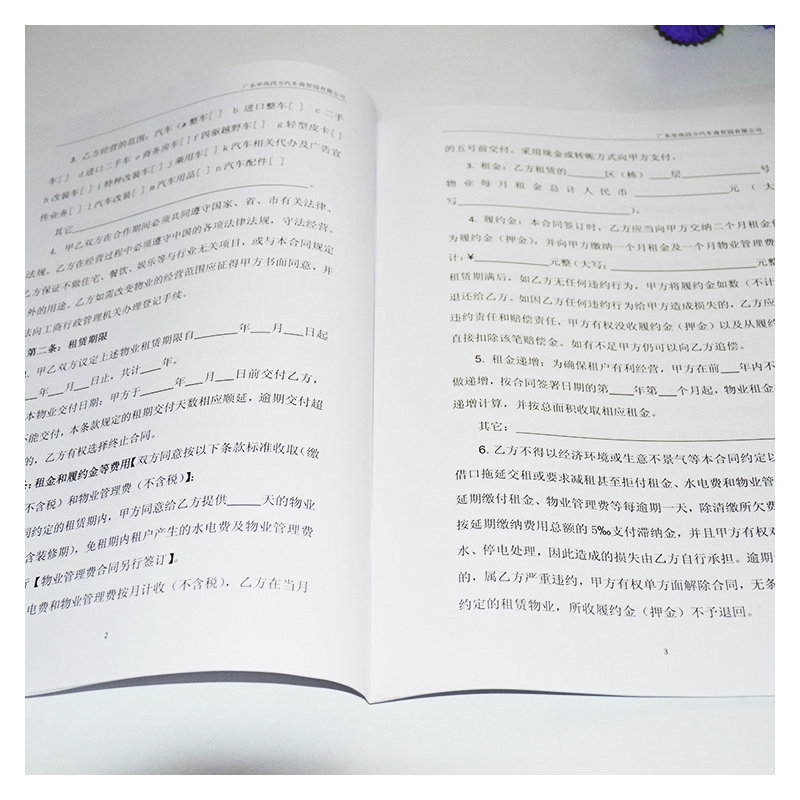 广东华伟四方汽车商贸园有限公司
3. 乙方经营的范围：汽车（a 整车[ ] b 进口整车[ ] c 二手
车[ ] d 进口二手车 e 商务房车[ ] f 四驱越野车[ ] g 轻型皮卡[ ]
h 改装车[ ] i 特种改装车[ ] j 乘用车[ ] k 汽车相关代办及广告宣
传业务[ ] l 汽车改装[ ] m 汽车用品[ ] n 汽车配件[ ]
其它____________________。
4. 甲乙双方在合作期间必须共同遵守国家、省、市有关法律、
法规，乙方在经营过程中必须遵守中国的各项法律法规，守法经营。
乙方保证不做住宅、餐饮、娱乐等与行业无关项目，或与本合同规定
外的用途。乙方如需改变物业的经营范围应征得甲方书面同意，并
法向工商行政管理机关办理登记手续。
第二条：租赁期限
甲乙双方议定上述物业租赁期限自______年___月___日起
___年___月___日止，共计___年。
本物业交付日期：甲方于______年___月___日前交付乙方，
不能交付，本条款规定的租期交付天数相应顺延，逾期交付超
的，乙方有权选择终止合同。
：租金和履约金等费用【双方同意按以下条款标准收取（缴
不含税）和物业管理费（不含税）】：
同约定的租赁期内，甲方同意给乙方提供____天的物业
含装修期），免租期内租户产生的水电费及物业管理费
行【物业管理费合同另行签订】。
电费和物业管理费按月计收（不含税），乙方在当月
2
广东华伟四方汽车商贸园有限公司
的五号前交付，采用现金或转帐方式向甲方支付。
3. 租金：乙方租赁的______区（栋）___层__________号
物业每月租金总计人民币____________元（大
写____________________）。
4. 履约金：本合同签订时，乙方应当向甲方交纳二个月租金作
为履约金（押金），并向甲方缴纳一个月租金及一个月物业管理费
计：¥__________元整（大写：____________________元整
租赁期满后，如乙方无任何违约行为，甲方将履约金如数（不计
退还给乙方。如因乙方任何违约行为给甲方造成损失的，乙方应
违约责任和赔偿责任，甲方有权没收履约金（押金）以及从履约
直接扣除该笔赔偿金。如有不足甲方仍可以向乙方追偿。
5. 租金递增：为确保租户有利经营，甲方在前___年内不
做递增，按合同签署日期的第___年第___个月起，物业租金
递增计算，并按总面积收取相应租金。
其它：______________________________
6. 乙方不得以经济环境或生意不景气等本合同约定以
借口拖延交租或要求减租甚至拒付租金、水电费和物业管
延期缴付租金、物业管理费等每逾期一天，除清缴所欠费
按延期缴纳费用总额的 5‰支付滞纳金，并且甲方有权对
水、停电处理，因此造成的损失由乙方自行承担。逾期
的，属乙方严重违约，甲方有权单方面解除合同，无条
约定的租赁物业，所收履约金（押金）不予退回。
3